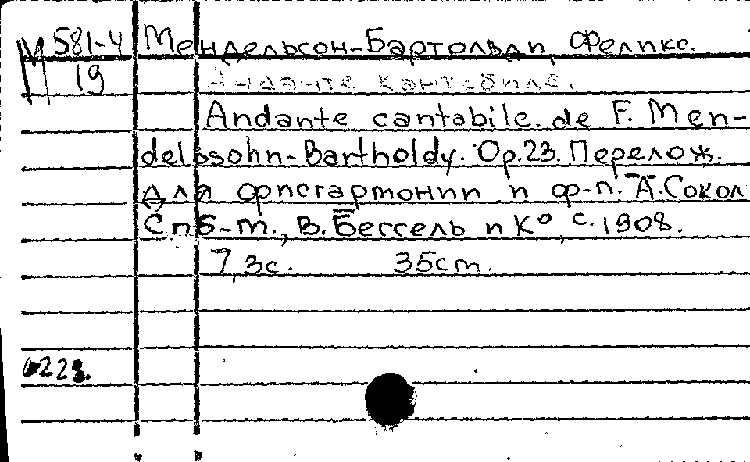 М 581-4 Мендельсон-Бартольди, Феликс.
19 Анданте кантабиле.
Andante cantabile. de F. Men-
delssohn-Bartholdy. Op.23. Перелож.
для фисгармонии и ф-п. А. Сокол
Спб-м., В. Бессель и К° с. 1908.
7,3с. 35cm.